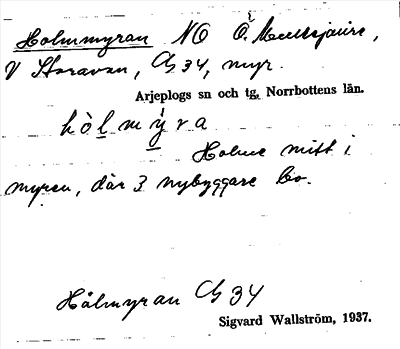 Holmmyran NO Ö. Meeksjaure,
V Storavan, Cg 34, myr.
Arjeplogs sn och tg, Norrbottens län.
hòlmỳra
Holme mitt i
myren, där 3 nybyggare bo.
Hålmyran Cg 34
Sigvard Wallström, 1937.